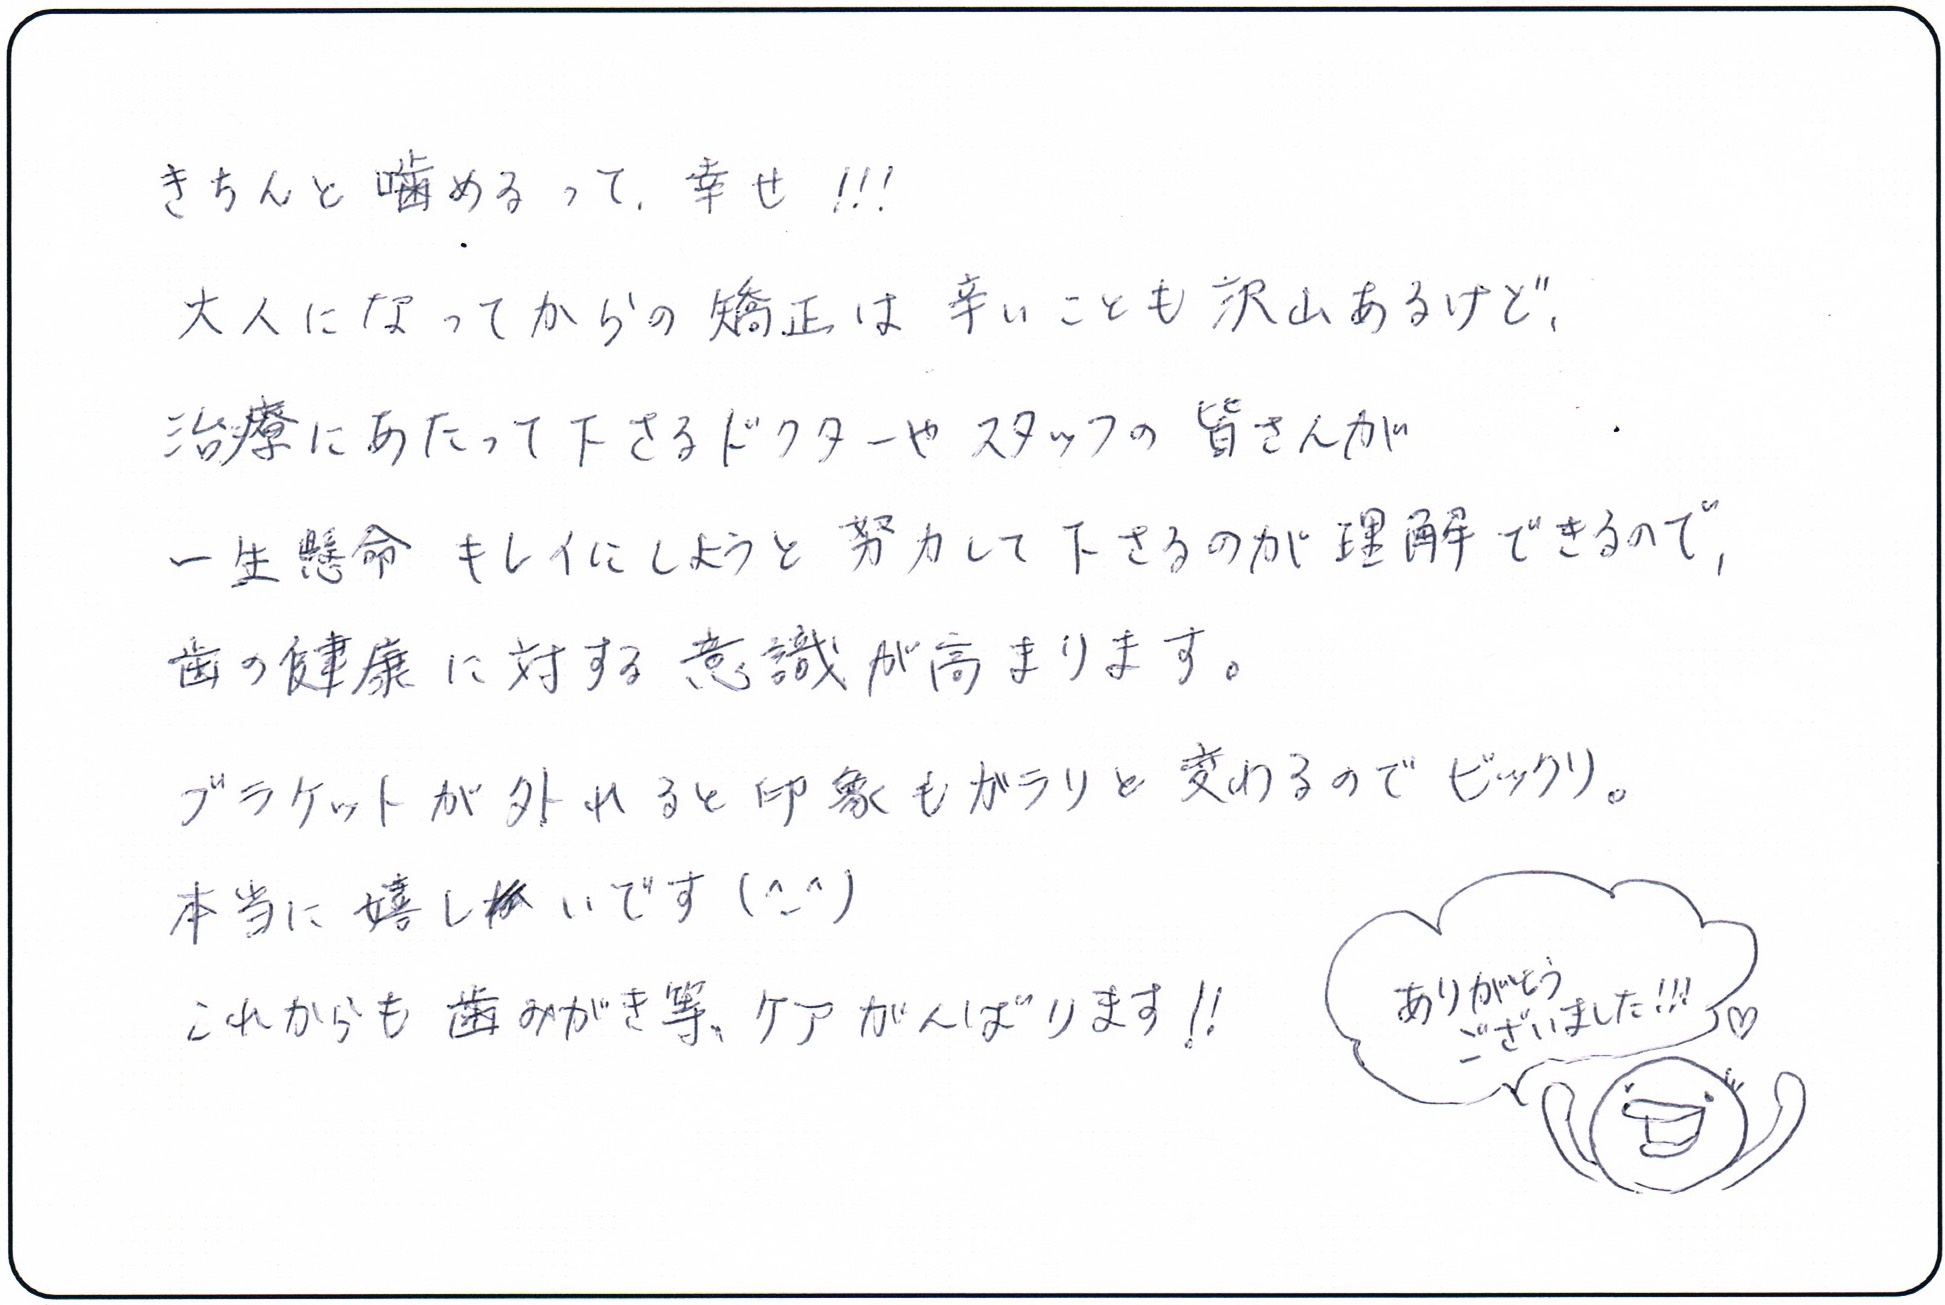 きちんと噛めるって、幸せ!!!
大人になってからの矯正は辛いことも沢山あるけど、
治療にあたって下さるドクターやスタッフの皆さんが
一生懸命キレイにしようと努力して下さるのが理解できるので、
歯の健康に対する意識が高まります。
ブラケットが外れると印象もガラリと変わるのでビックリ。
本当に嬉しいです(^_^)
これからも歯みがき等、ケアがんばります!!
ありがとう
ございました!!!